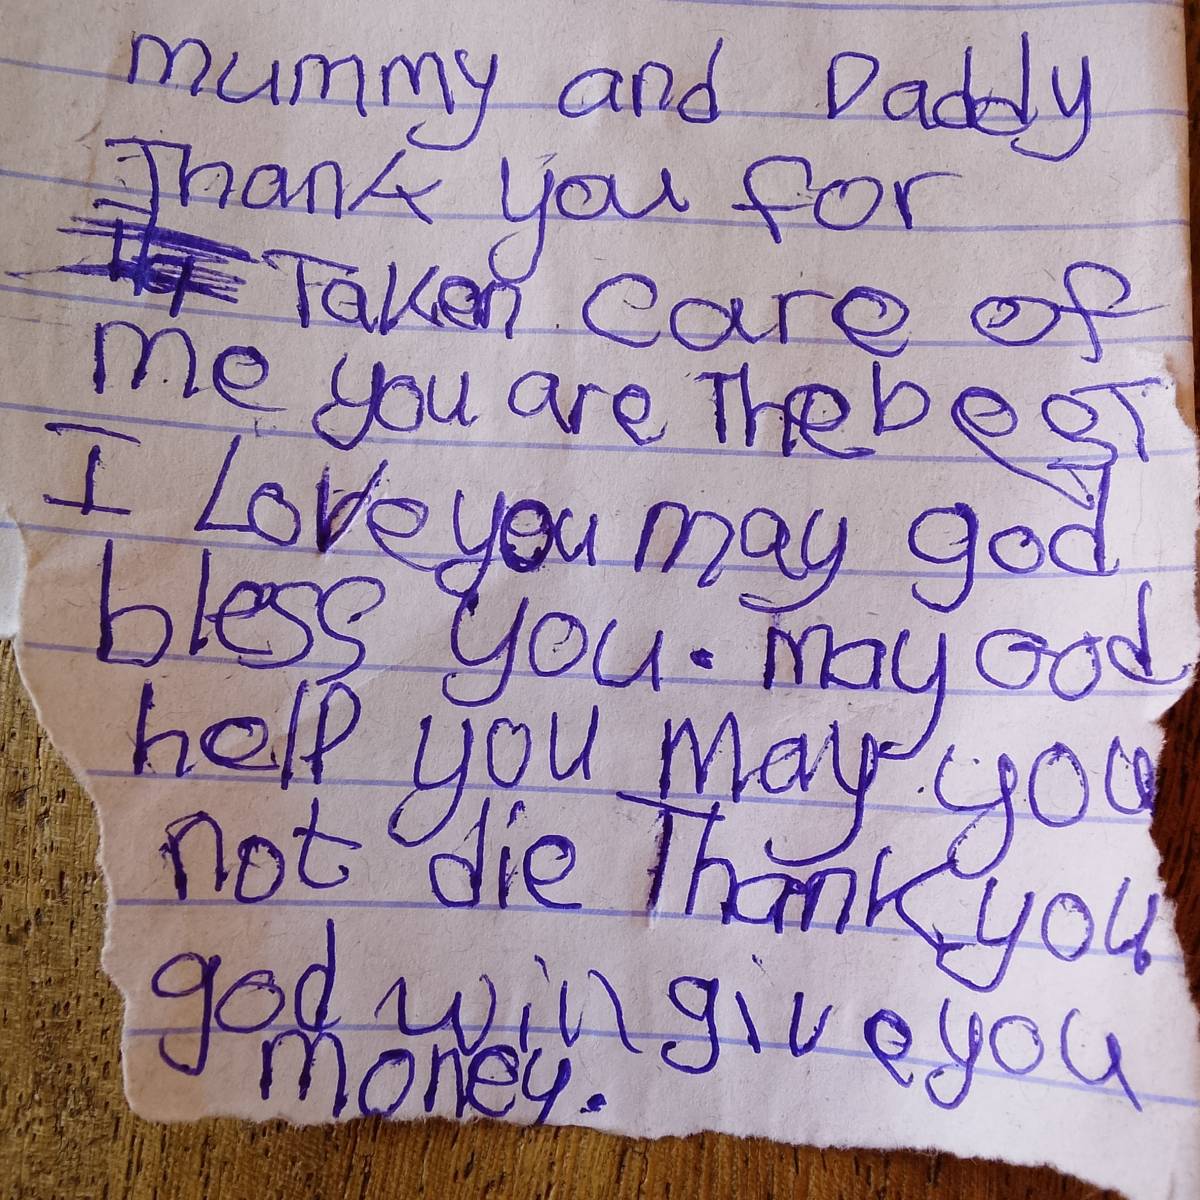 mummy and Daddy
Thank you for
Taken care of
me you are The besT
I Love you may god
bless you. may God
help you may you
not die Thank you
god will give you
money.